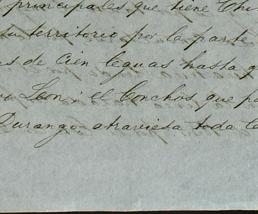 principales que tiene Chi
su territorio por la parte
s de cien leguas hasta q
Leon i el Conchos que pa
Durango atraviesa toda la